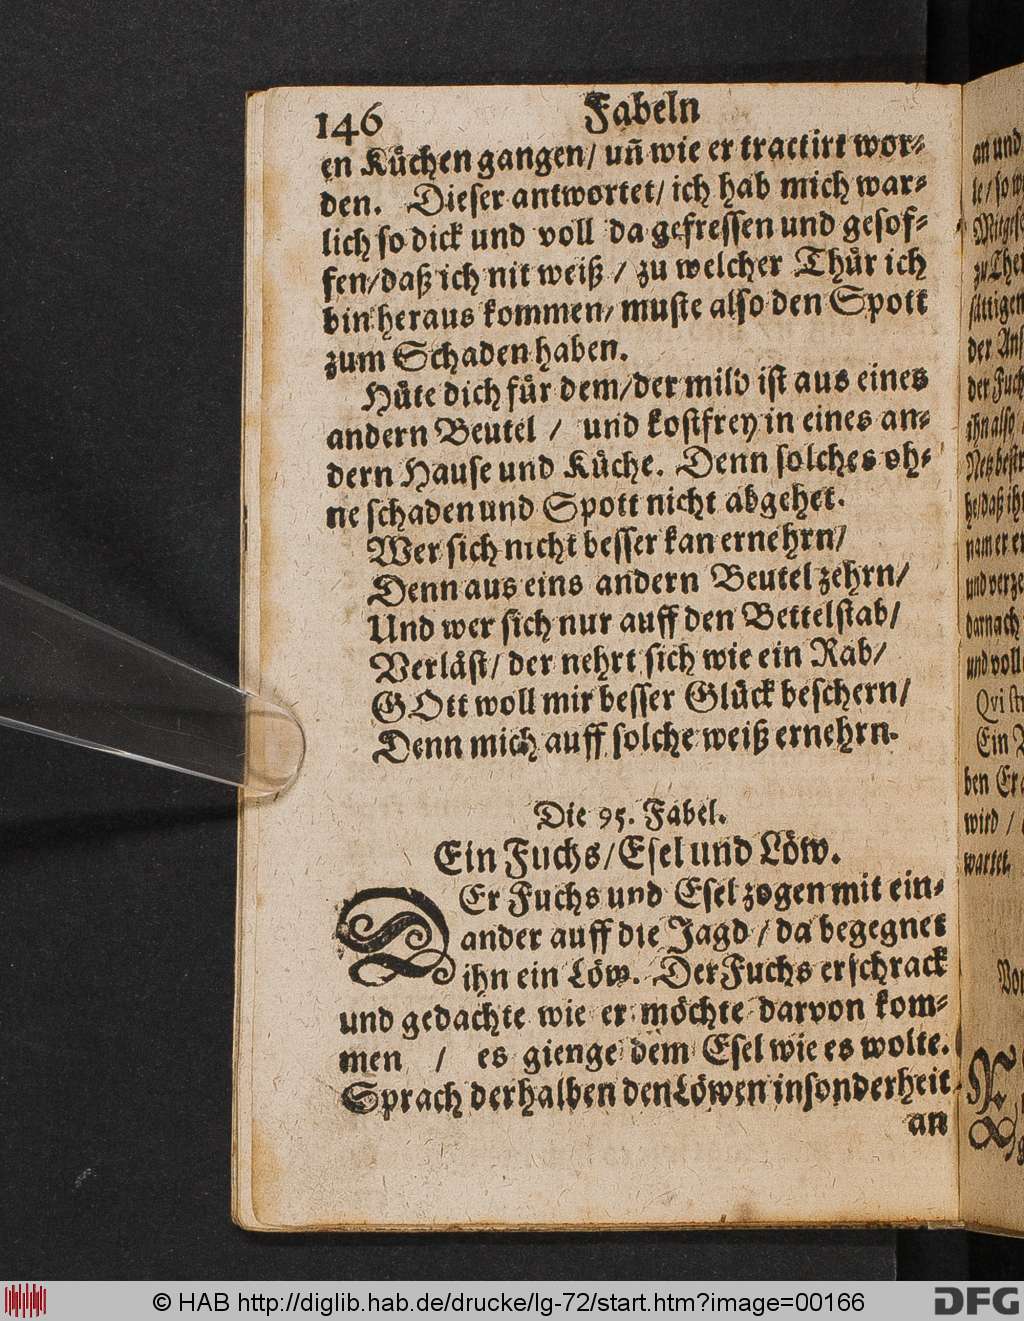 146 Fabeln
en Kuͤchen gangen/ uñ wie er tractirt wor-
den. Dieser antwortet/ ich hab mich war-
lich so dick und voll da gefressen und gesof-
fen/daß ich nit weiß / zu welcher Thuͤr ich
bin heraus kommen/ muste also den Spott
zum Schaden haben.
Huͤte dich fuͤr dem/der mild ist aus eines
andern Beutel / und kostfrey in eines an-
dern Hause und Kuͤche. Denn solches oh-
ne schaden und Spott nicht abgehet.
Wer sich nicht besser kan ernehrn/
Denn aus eins andern Beutel zehrn/
Und wer sich nur auff den Bettelstab/
Verlaͤst/ der nehrt sich wie ein Rab/
GOtt woll mir besser Gluͤck beschern/
Denn mich auff solche weiß ernehrn.
Die 95. Fabel.
Ein Fuchs/Esel und Loͤw.
DEr Fuchs und Esel zogen mit ein-
ander auff die Jagd / da begegnet
ihn ein Loͤw. Der Fuchs erschrack
und gedachte wie er moͤchte darvon kom-
men / es gienge dem Esel wie es wolte.
Sprach derhalben den Loͤwen insonderheit
an
an und
le/ so
zu
der
der Fuch
ihn also
nam er
und
darnach
und voll
Qvi
Ein
ben
wird /
wartet.
© HAB http://diglib.hab.de/drucke/lg-72/start.htm?image=00166
DFG